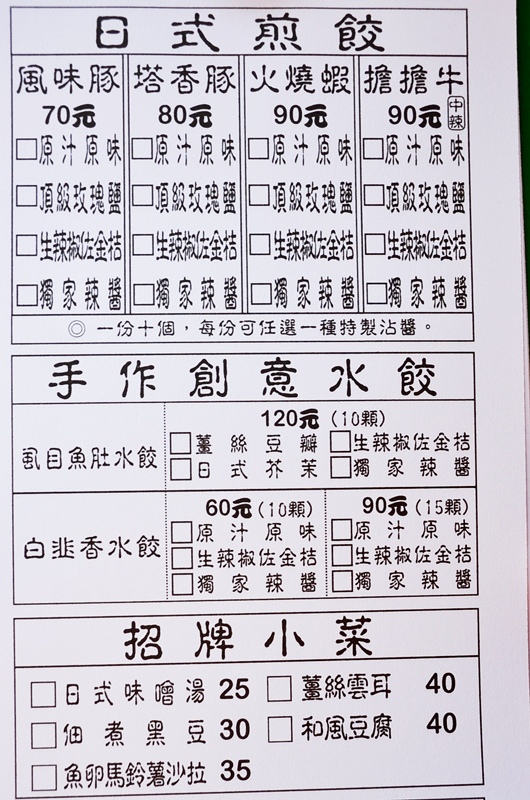 日式煎餃
風味豚 塔香豚 火燒蝦 擔擔牛
70元 80元 90元 90元 中辣
□原汁原味 □原汁原味 □原汁原味 □原汁原味
□頂級玫瑰鹽 □頂級玫瑰鹽 □頂級玫瑰鹽 □頂級玫瑰鹽
□生辣椒佐金桔 □生辣椒佐金桔 □生辣椒佐金桔 □生辣椒佐金桔
□獨家辣醬 □獨家辣醬 □獨家辣醬 □獨家辣醬
◎ 一份十個，每份可任選一種特製沾醬。
手作創意水餃
虱目魚肚水餃
120元 (10顆)
□薑絲豆瓣 □生辣椒佐金桔
□日式芥茉 □獨家辣醬
白韭香水餃
60元 (10顆) 90元 (15顆)
□原汁原味 □原汁原味
□生辣椒佐金桔 □生辣椒佐金桔
□獨家辣醬 □獨家辣醬
招牌小菜
□日式味噌湯 25 □薑絲雲耳 40
□佃煮黑豆 30 □和風豆腐 40
□魚卵馬鈴薯沙拉 35